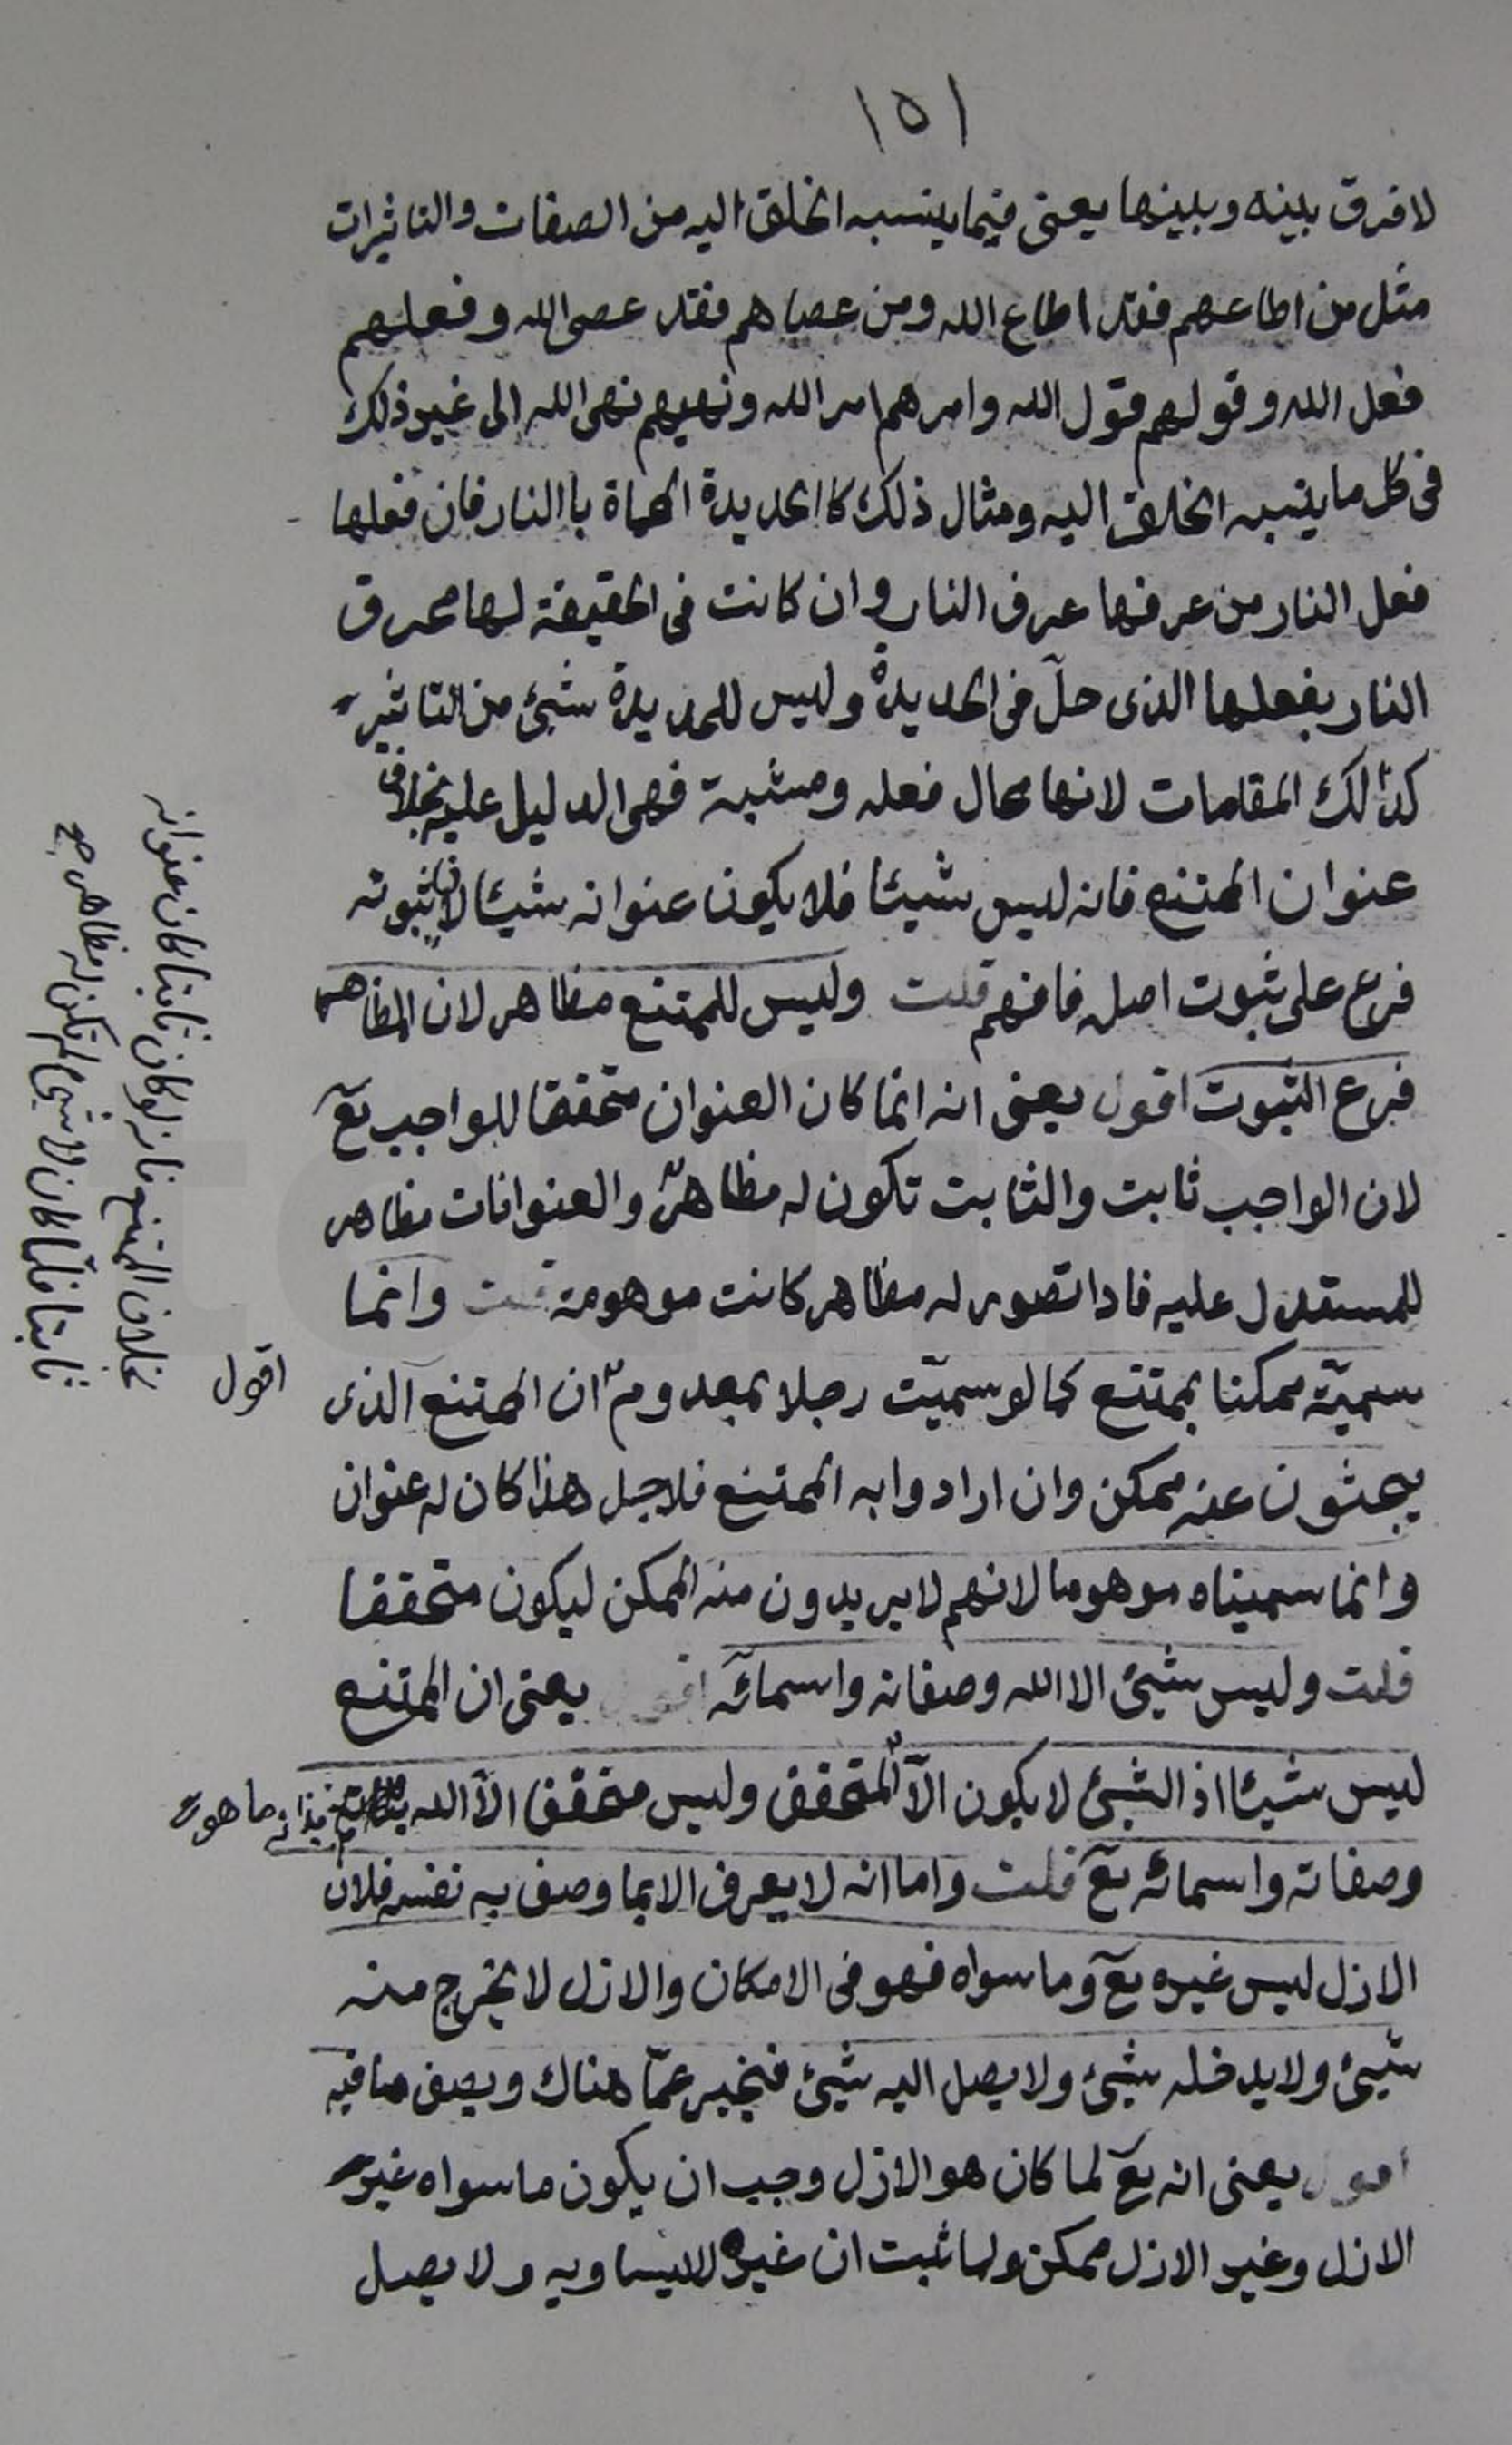 ١٥١
لا فرق بينه وبينها يعنى فيما ينسبه الخلق اليه من الصفات والتاثيرات
مثل من اطاعهم فقد اطاع الله ومن عصاهم فقد عصى الله وفعلهم
فعل الله وقولهم قول الله وامرهم امر الله ونهيهم نهى الله الى غير ذلك
فى كل ما ينسبه الخلق اليه ومثال ذلك كالحديدة المحماة باالنار فان فعلها
فعل النار من عرفها عرف النار وان كانت فى الحقيقة لها محرق
النار بفعلها الذى حلّ فى الحديدة وليس للحديدة شيئ من التاثير
كذالك المقامات لانها محال فعله ومشية فهى الدليل عليه بخلاف
عنوان الممتنع فانه ليس شيئا فلا يكون عنوانه شيئا لان ثبوته
فرع على ثبوت اصله فافهم قلت وليس للممتنع مظاهر لان المظاهر
فرع الثبوت اقول يعنى انه انما كان العنوان متحققا للواجب تع
لان الواجب ثابت والثابت تكون له مظاهر والعنوانات مظاهر
للمستدل عليه فاذا تصور له مظاهر كانت موهومة قلت وانما
سميّته ممكنا بممتنع كما لو سميّت رجلا بمعدوم ان الممتنع الذى
يبحثون عنه ممكن وان ارادوا به الممتنع فلاجل هذا كان له عنوان
وانما سميناه موهوما لانهم لا يريدون منه الممكن ليكون متحققا
قلت وليس شيئ الا الله وصفاته واسمائه اقول يعنى ان الممتنع
ليس شيئا اذ الشيئ لا يكون الّا المتحقق وليس متحققا الّا الله بذاته ما هو
وصفاته واسمائه تع قلت واما انه لا يعرف الا بما وصف به نفسه فلان
الازل ليس غيره تع وما سواه فهو فى الامكان والازل لا يخرج منه
شيئ ولا يدخله شيئ ولا يصل اليه شيئ فيخبر عمّا هناك ويصف ما فيه
اقول يعنى انه تع لما كان هو الازل وجب ان يكون ما سواه غير
الازل وغير الازل ممكن ولما ثبت ان غيره لا يساويه ولا يصل
اقول
بخلاف الممتنع فانه لو كان ثابتا كان عنوانه
ثابتا فلمّا كان لا شيئ لم تكن له مظاهر صح